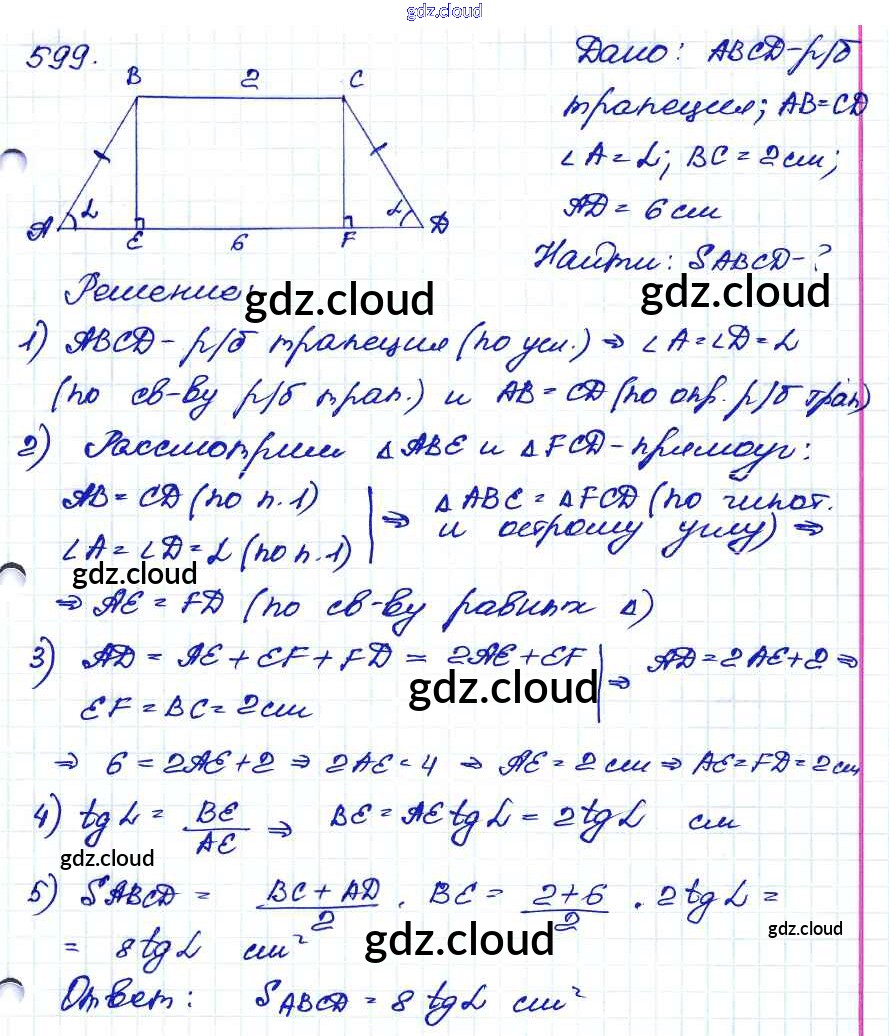 gdz.cloud
599.
B 2 C
A L E 6 F L D
Дано: ABCD-р/б
трапеция; AB=CD
∠A=L; BC=2см;
AD=6см
Найти: SABCD-?
Решение:
gdz.cloud gdz.cloud
1) ABCD- р/б трапеция (по усл.) ⇒ ∠A=∠D=L
(по св-ву р/б трап.) и AB=CD (по опр. р/б трап)
2) Рассмотрим △ABE и △FCD-прямоуг:
AB=CD (по п.1) | ⇒ △ABE=△FCD (по гипот.
∠A=∠D=L (по п.1) | и острому углу) ⇒
gdz.cloud
⇒ AE=FD (по св-ву равных △)
3) AD=AE+EF+FD=2AE+EF | ⇒ AD=2AE+2 ⇒
EF=BC=2см
gdz.cloud
⇒ 6=2AE+2 ⇒ 2AE=4 ⇒ AE=2см ⇒ AE=FD=2см
4) tgL = BE/AE ⇒ BE=AEtgL=2tgL см
gdz.cloud
5) SABCD = (BC+AD)/2 · BE = (2+6)/2 · 2tgL =
gdz.cloud
= 8tgL см²
gdz.cloud
Ответ: SABCD=8tgL см²